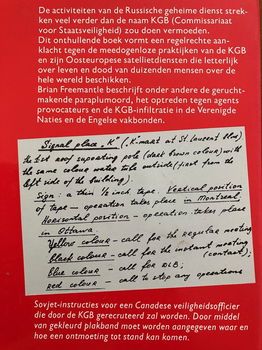 De activiteiten van de Russische geheime dienst strek-
ken veel verder dan de naam KGB (Commissariaat
voor Staatsveiligheid) zou doen vermoeden.
Dit onthullende boek vormt een regelrechte aan-
klacht tegen de meedogenloze praktijken van de KGB
en zijn Oosteuropese satellietdiensten die letterlijk
over leven en dood van duizenden mensen over de
hele wereld beschikken.
Brian Freemantle beschrijft onder andere de gerucht-
makende paraplumoord, het optreden tegen agents
provocateurs en de KGB-infiltratie in de Verenigde
Naties en de Engelse vakbonden.
Signal place „K" („K-mart at St. Laurent Blvd)
the 1st roof supporting pole (dark brown colour) with
the same colour water tube outside (first from the
left side of the building).
Sign: a thin 1/2 inch tape. Vertical position
of tape – operation takes place in Montreal
Horisontal position – operation takes place
in Ottawa
Yellow colour – call for the regular meeting
black colour – call for the instant meeting
(contact);
Blue colour – call for DLB;
red colour – call to stop any operations
Sovjet-instructies voor een Canadese veiligheidsofficier
die door de KGB gerecruteerd zal worden. Door middel
van gekleurd plakband moet worden aangegeven waar en
hoe een ontmoeting tot stand kan komen.